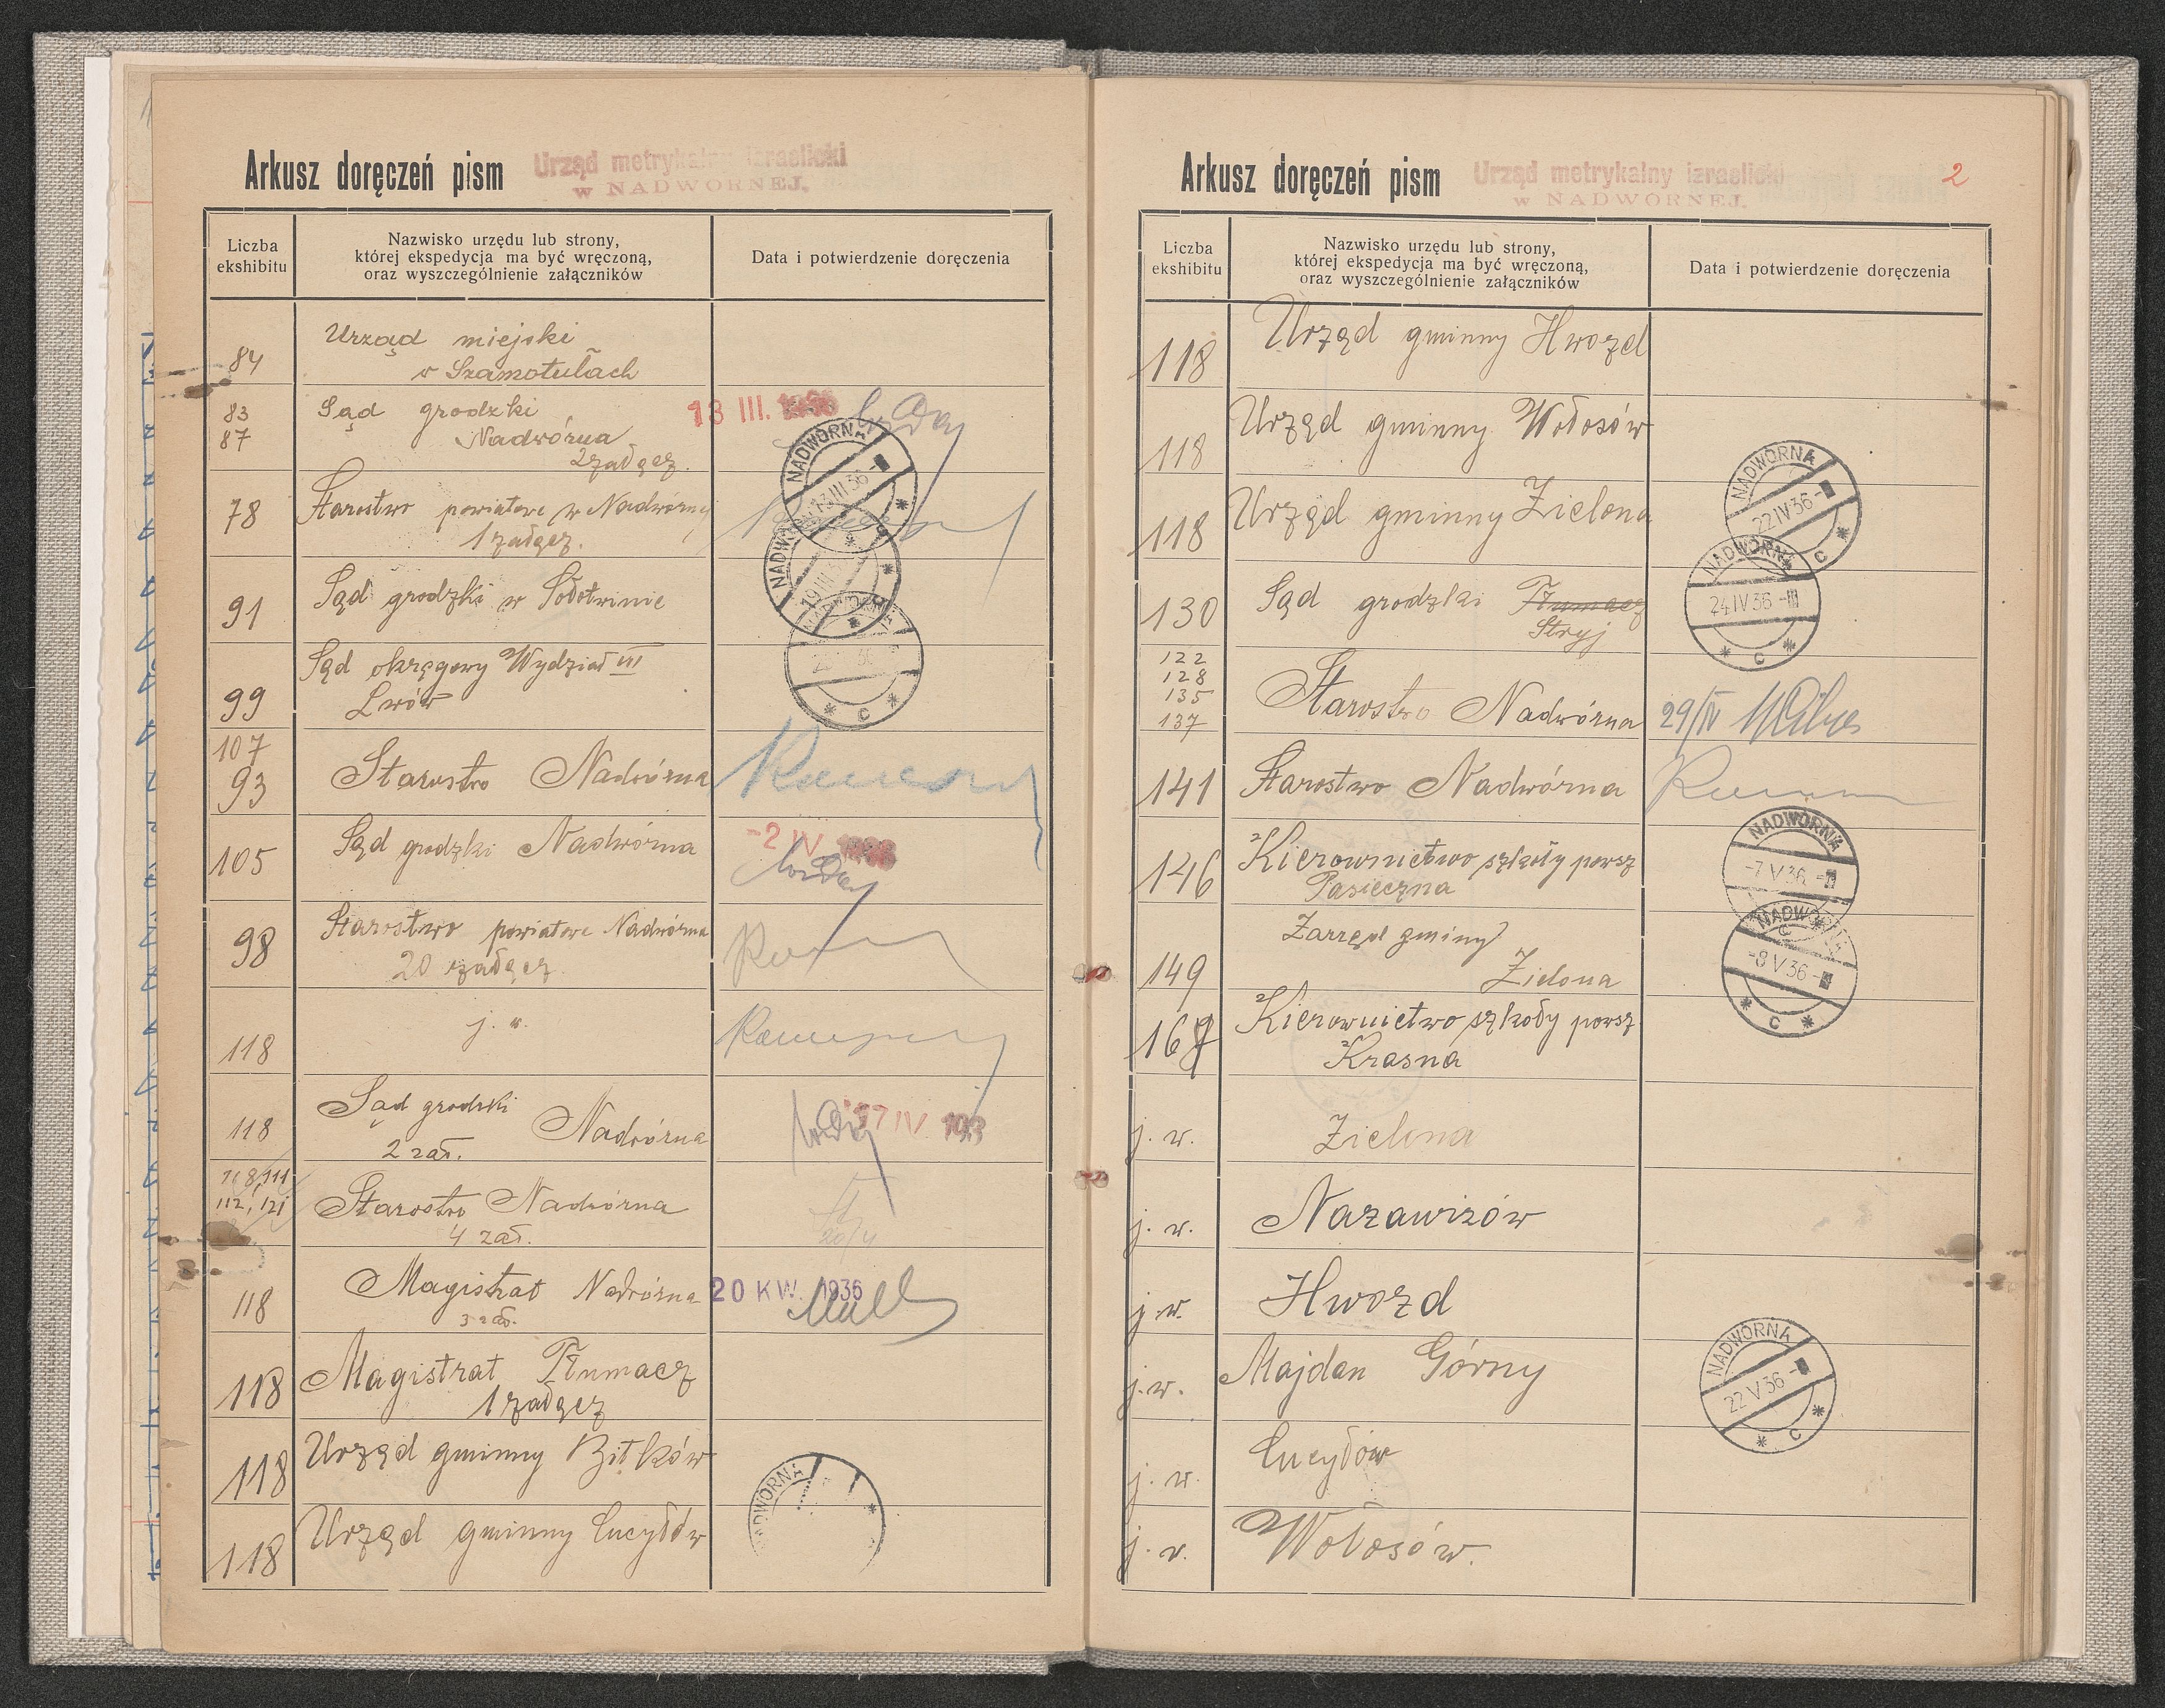 Arkusz doręczeń pism
Urząd metrykalny izraelicki
w NADWÓRNEJ.
Liczba
ekshibitu
Nazwisko urzędu lub strony,
której ekspedycja ma być wręczoną,
oraz wyszczególnienie załączników
Data i potwierdzenie doręczenia
84
Urząd miejski
w Szamotułach
83
87
Sąd grodzki
Nadwórna
2załącz.
13 III. 1936
NADWÓRNA
13 III 36
78
Starostwo powiatowe w Nadwórnej
1 załącz.
91
Sąd grodzki w Sołotwinie
NADWÓRNA
19 III 3
99
Sąd okręgowy Wydział III
Lwów
C
107
93
Starostwo Nadwórna
105
Sąd grodzki Nadwórna
-2 IV 1936
98
Starostwo powiatowe Nadwórna
20 załącz.
118
j. w.
118
Sąd grodzki Nadwórna
2 zał.
17 IV 193
108, 111
112, 121
Starostwo Nadwórna
4 zał.
20/4
118
Magistrat Nadwórna
3 zał.
20 KW. 1936
118
Magistrat Tłumacz
1 załącz
118
Urząd gminny Bitków
118
Urząd gminny Łucyłów
NADWÓRNA
Arkusz doręczeń pism
Urząd metrykalny izraelicki
w NADWÓRNEJ.
2
Liczba
ekshibitu
Nazwisko urzędu lub strony,
której ekspedycja ma być wręczoną,
oraz wyszczególnienie załączników
Data i potwierdzenie doręczenia
118
Urząd gminny Hwozd
118
Urząd gminny Wołosów
118
Urząd gminny Zielona
NADWÓRNA
22 IV 36
C
130
Sąd grodzki Tłumacz
Stryj
NADWÓRNA
24 IV 36 - III
C
122
128
135
137
Starostwo Nadwórna
29/IV
141
Starostwo Nadwórna
146
Kierownictwo szkoły powsz
Pasieczna
NADWÓRNA
-7 V 36
C
149
Zarząd gminy
Zielona
NADWÓRNA
-8 V 36
C
169
Kierownictwo szkoły powsz
Krasna
j. w.
Zielona
j. w.
Nazawizów
j. w.
Hwozd
j. w.
Majdan Górny
NADWÓRNA
22 V 36
C
j. w.
Łucyłów
j. w.
Wołosów.